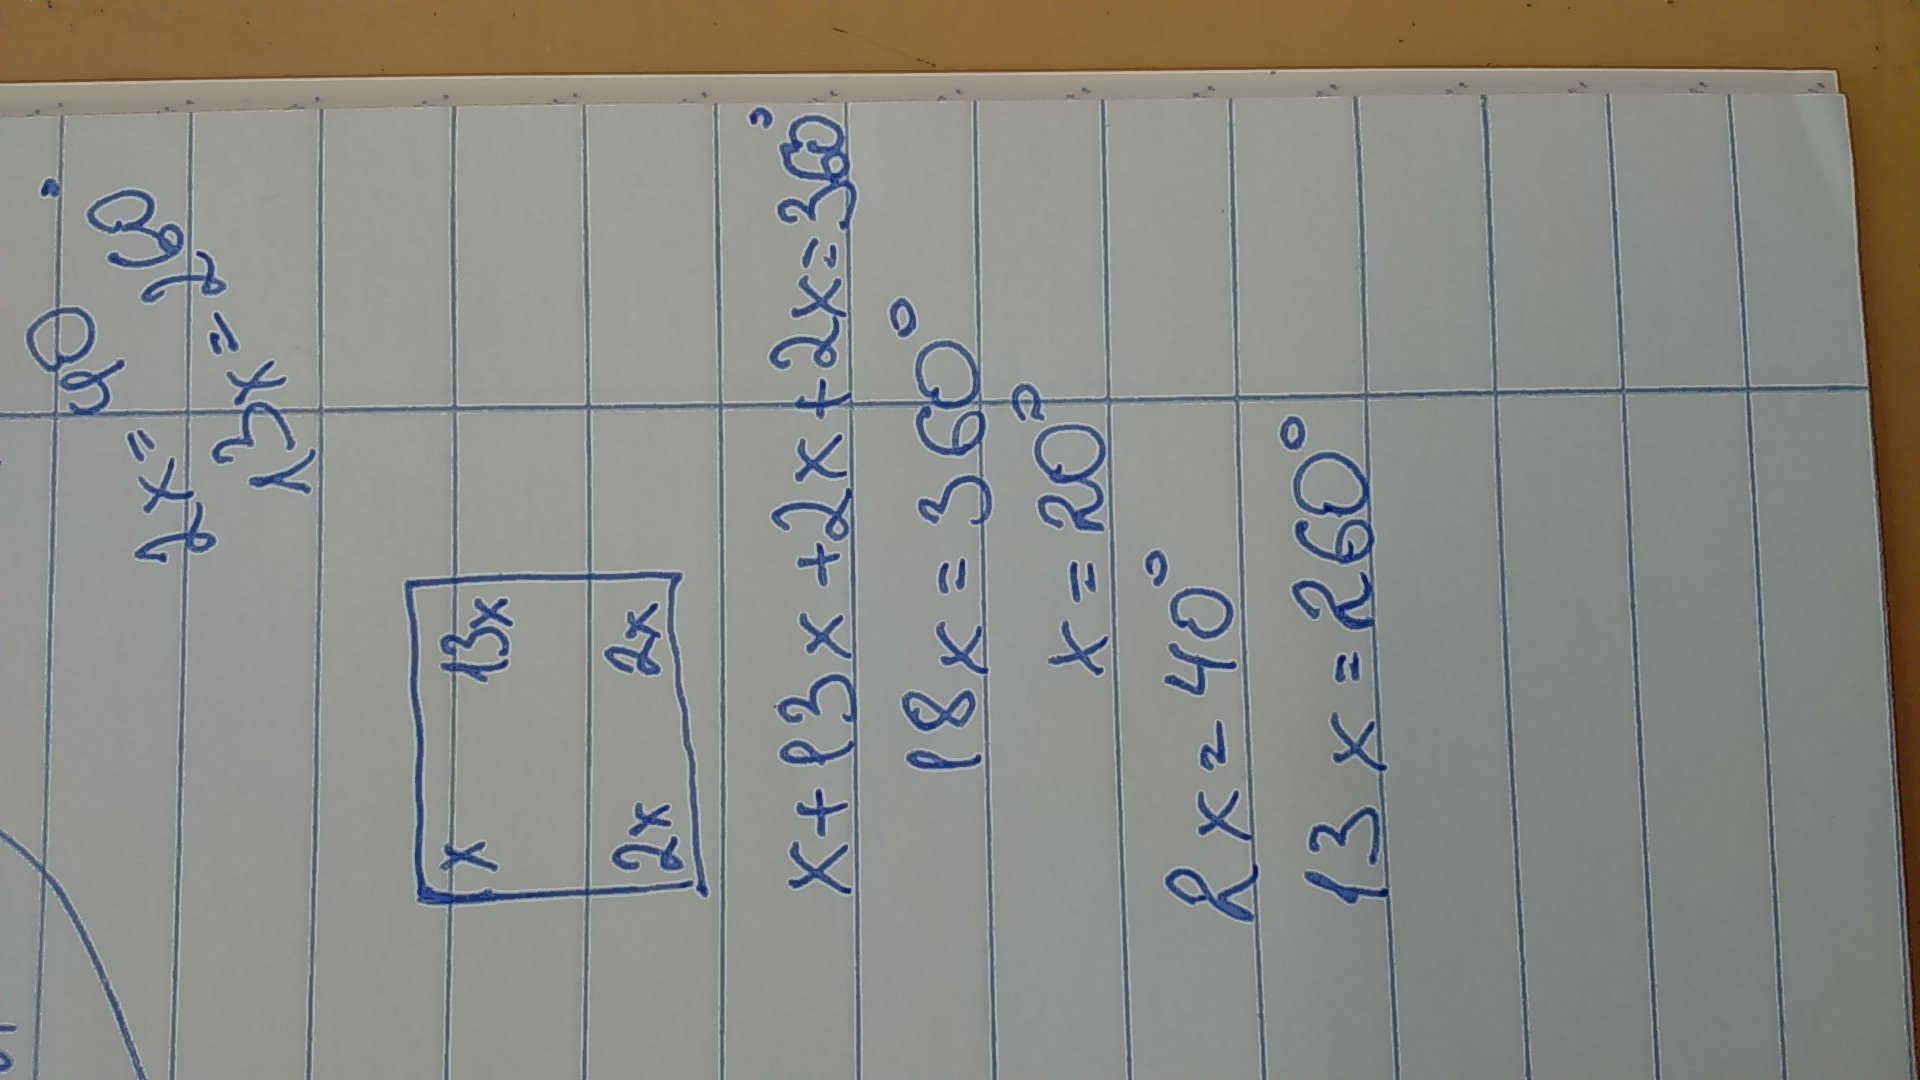 2x = 40
13x = 260°
x 13x
2x 2x
x+13x+2x+2x=360°
18x=360°
x=20°
2x=40°
13x=260°